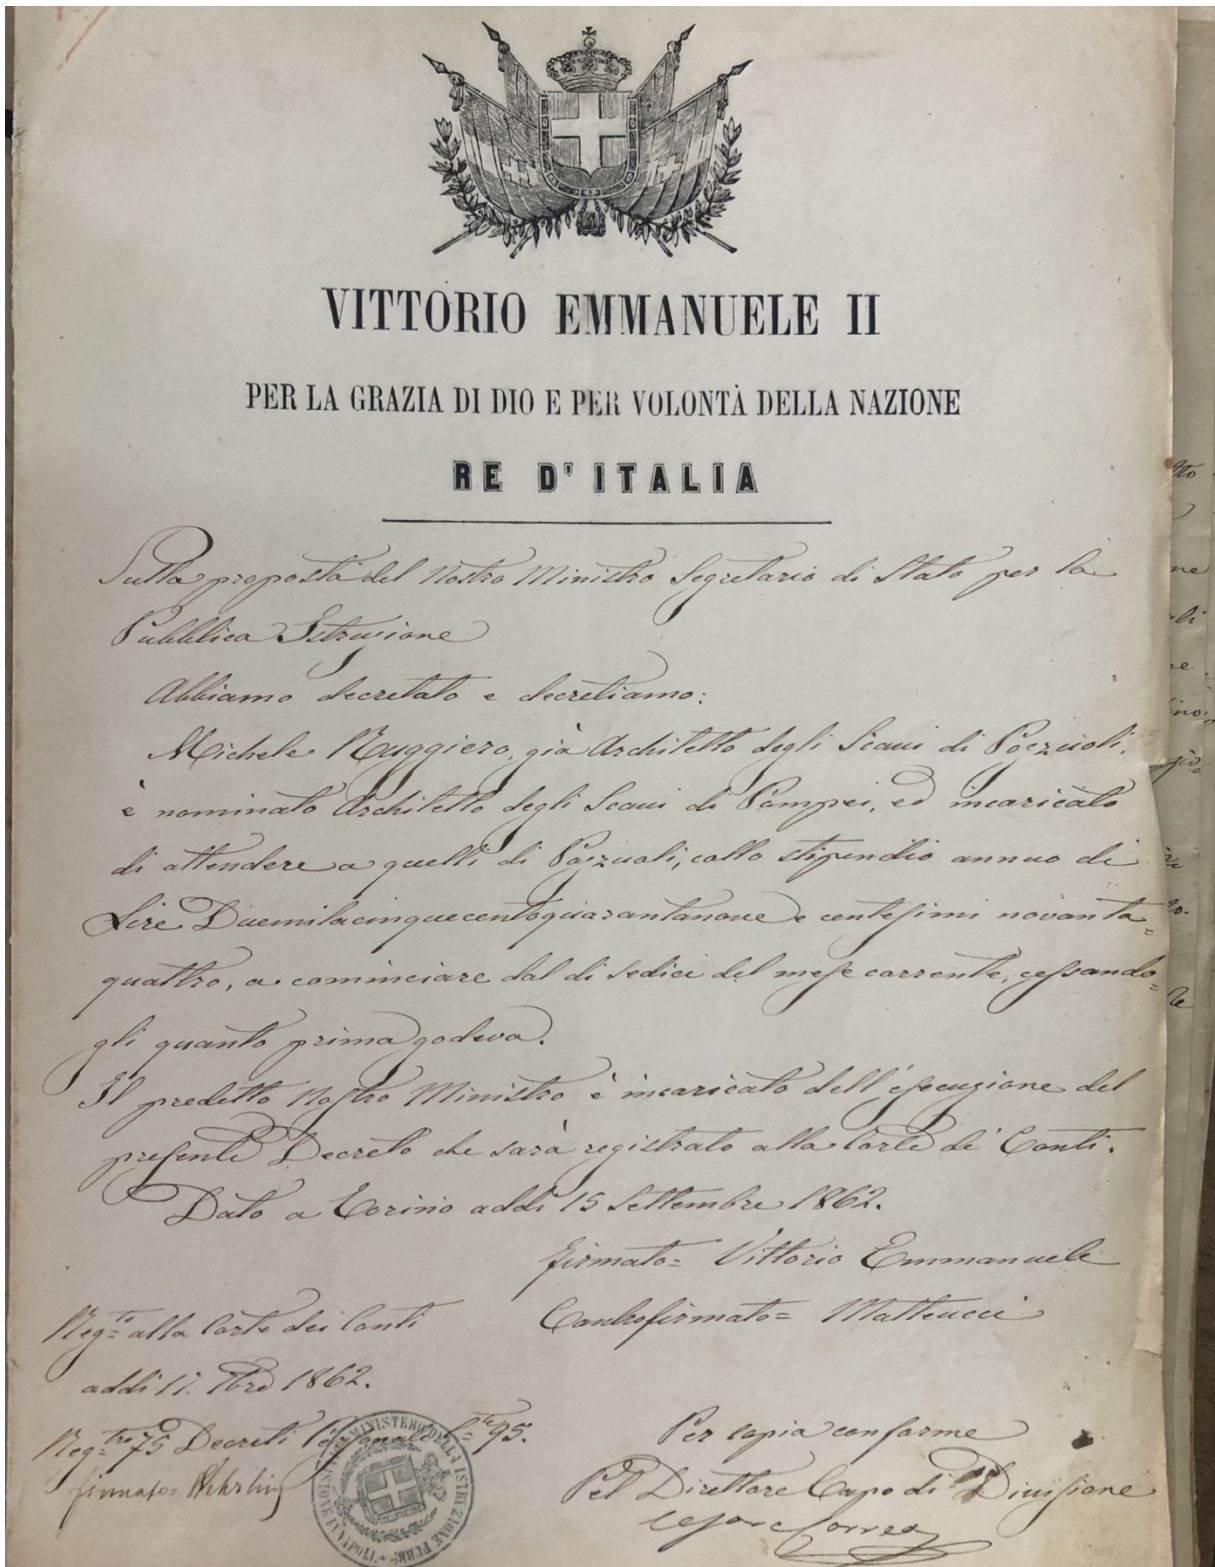 VITTORIO EMMANUELE II
PER LA GRAZIA DI DIO E PER VOLONTÀ DELLA NAZIONE
RE D'ITALIA
Sulla proposta del Nostro Ministro Segretario di Stato per la
Pubblica Istruzione
Abbiamo decretato e decretiamo:
Michele Ruggiero, già Architetto degli Scavi di Pozzuoli,
è nominato Architetto degli Scavi di Pompei, ed incaricato
di attendere a quelli di Pozzuoli, collo stipendio annuo di
Lire Duemilacinquecentoquarantanove e centesimi novanta=
quattro, a cominciare dal dì sedici del mese corrente, cessando=
gli quanto prima godeva.
Il predetto Nostro Ministro è incaricato dell'esecuzione del
presente Decreto che sarà registrato alla Corte de' Conti.
Dato a Torino addì 15 Settembre 1862.
firmato= Vittorio Emmanuele
Controfirmato= Matteucci
Reg=to alla Corte dei Conti
addì 1862.
Reg=tro 75 Decreti Personali 95.
firmato=
Per copia conforme
Pel Direttore Capo di Divisione
Cesare Correa
MINISTERO DELLA ISTRUZIONE PUBB
IN NAPOLI